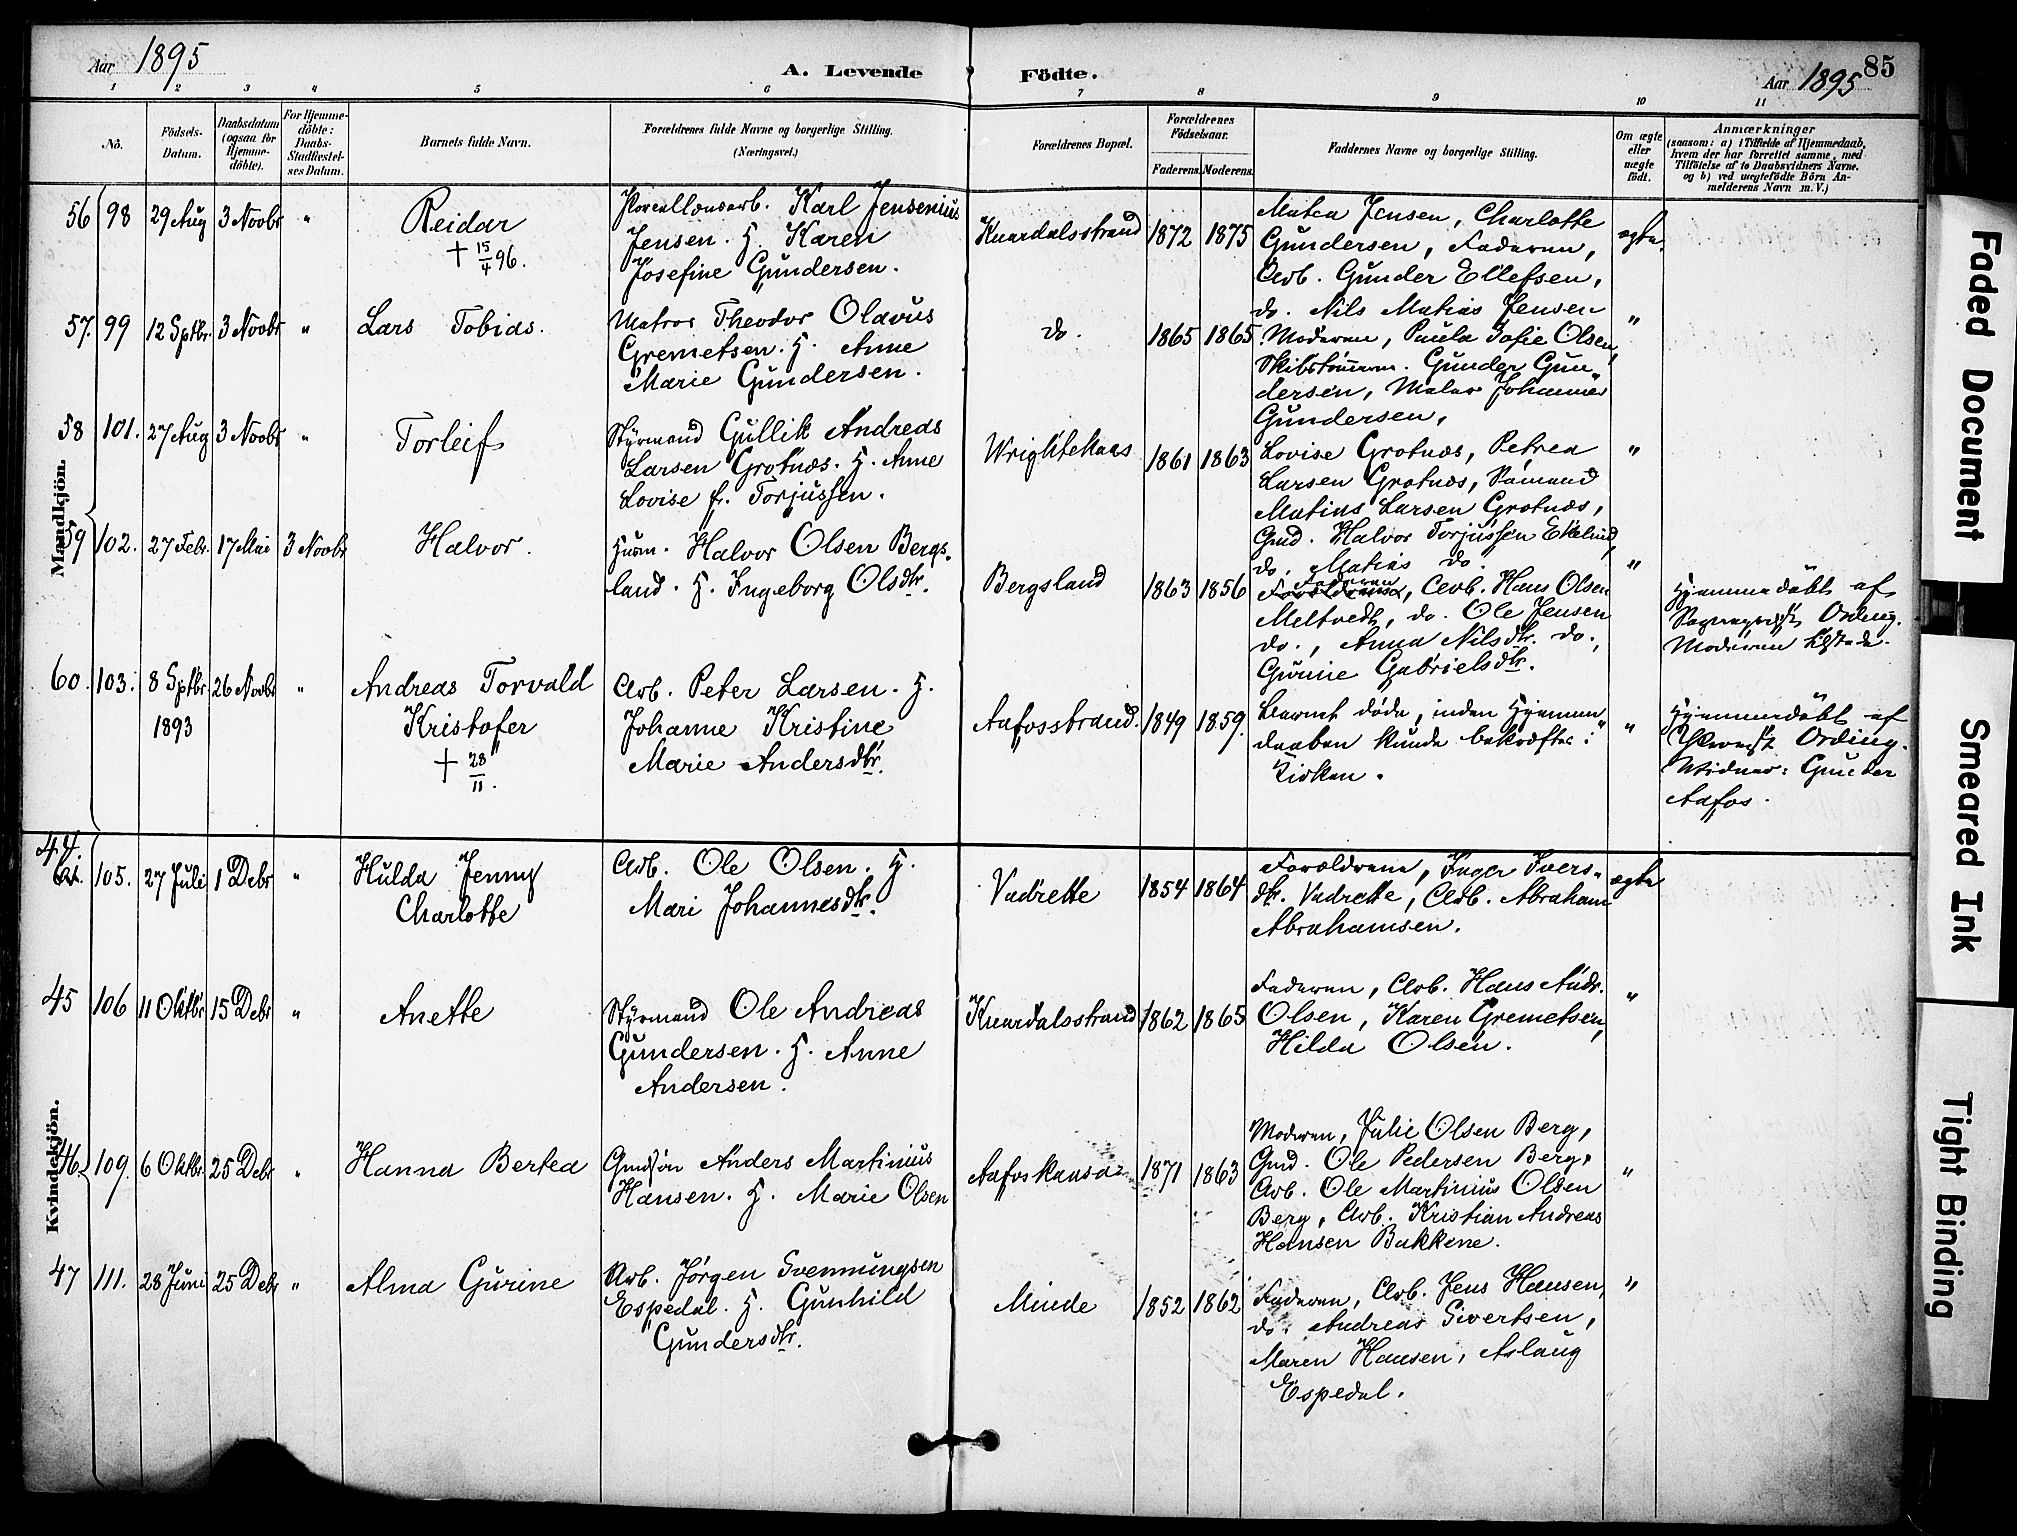 Aar 1895
A. Levende Födte.
Aar 1895
85
1 2 3 4 5 6 7 8 9 10 11
No.
Födsels-Datum.
Daabsdatum (ogsaa for Hjemme-döbte).
For Hjemme-döbte: Daabs-Stadfæstel-ses Datum.
Barnets fulde Navn.
Forældrenes fulde Navne og borgerlige Stilling. (Næringsvei.)
Forældrenes Bopæl.
Forældrenes Födselsaar.
Faderens. Moderens.
Faddernes Navne og borgerlige Stilling.
Om ægte eller uægte födt.
Anmærkninger
(saasom: a) i Tilfælde af Hjemmedaab, hvem der har forrettet samme, med Tilföielse af to Daabsvidners Navne, og b) ved uægtefödte Börn An-melderens Navn m. V.)
Mandkjön.
56 98 29 Aug 3 Novbr "
Reidar
† 15/4 96.
Porcellonsarb. Karl Jensenius
Jensen. H. Karen
Josefine Gundersen.
Knardalsstrand 1872 1875
Matea Jensen, Charlotte
Gundersen, Faderen,
Arb. Gunder Ellefsen,
do. Nils Matias Jensen
ægte.
57. 99 12 Sptbr. 3 Novbr "
Lars Tobias.
Matros Theodor Olavus
Gremetsen. H. Anne
Marie Gundersen.
do. 1865 1865
Moderen, Paula Sofie Olsen,
Skibstømrm. Gunder Gun-
dersen, Mator Johannes
Gundersen,
"
58 101. 27 Aug 3 Novbr "
Torleif
Styrmand Gullik Andreas
Larsen Grotnæs. H. Anne
Lovise f. Torjussen.
1861 1863
Lovise Grotnæs, Petrea
Larsen Grotnæs, Sömand
Matias Larsen Grotnæs,
Gmd. Halvor Torjussen Ekelund,
do. Matias do.
"
59 102. 27 Febr. 17 Mai 3 Novbr
Halvor.
Husm. Halvor Olsen Bergs-
land. H. Ingeborg Olsdtr.
Bergsland 1863 1856
Faderen
Forældrene, Arb. Hans Olsen
Meltvedt, do. Ole Jensen
do., Anna Nilsdtr. do.,
Gurine Gabrielsdtr.
"
Hjemmedöbt af
Sogneprest Ording.
Moderen tilstede.
60. 103. 8 Sptbr. 26 Novbr "
1893
Andreas Torvald
Kristofer
† 28/11.
Arb. Peter Larsen. H.
Johanne Kristine
Marie Andersdtr.
Aafosstrand. 1849 1859.
Barnet döde, inden Hjemme-
daaben kunde bekræftes i
Kirken.
"
Hjemmedöbt af
Ording.
Vidner: Gunder
Aafos.
Kvindekjön.
44.
61. 105. 27 Juli 1 Debr "
Hulda Jenny
Charlotte
Arb. Ole Olsen. H.
Mari Johannesdtr.
Vadrette 1854 1864
Forældrene, Inger Ivers-
dtr. Vadrette, Arb. Abraham
Abrahamsen.
ægte
45 106 11 Oktbr. 15 Debr "
Anette
Styrmand Ole Andreas
Gundersen. H. Anne
Andersen.
Knardalsstrand 1862 1865
Faderen, Arb. Hans Andr.
Olsen, Karen Gremetsen,
Hilda Olsen.
"
46. 109. 6 Oktbr. 25 Debr "
Hanna Bertea
Gmdsøn Anders Martinius
Hansen. H. Marie Olsen
1871 1863
Moderen, Julie Olsen Berg,
Gmd. Ole Pedersen Berg,
Arb. Ole Martinius Olsen
Berg, Arb. Kristian Andreas
Hansen Bakkene.
"
47 111. 28 Juni 25 Debr "
Alma Gurine
Arb. Jørgen Svennungsen
Espedal. H. Gunhild
Gundersdtr.
Minde 1852 1862
Faderen, Arb. Jens Hansen,
do. Andreas Sivertsen,
Maren Hansen, Aslaug
Espedal.
"
Faded Document
Smeared Ink
Tight Binding